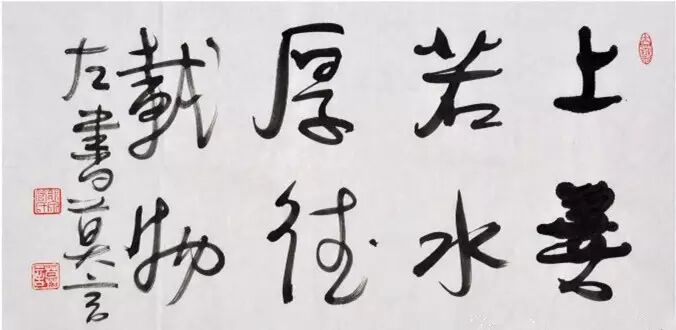 上善
若水
厚德
載物
左書莫言